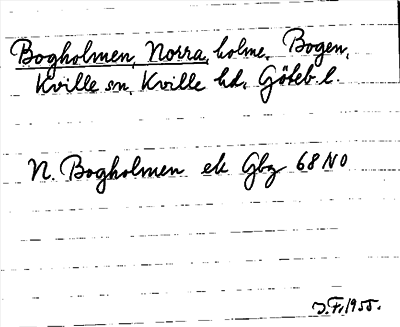 Bogholmen, Norra, holme, Bogen,
Kville sn, Kville hd, Göteb. l.
N. Bogholmen ek Gbg 68 NO
J. Fr. 1955.